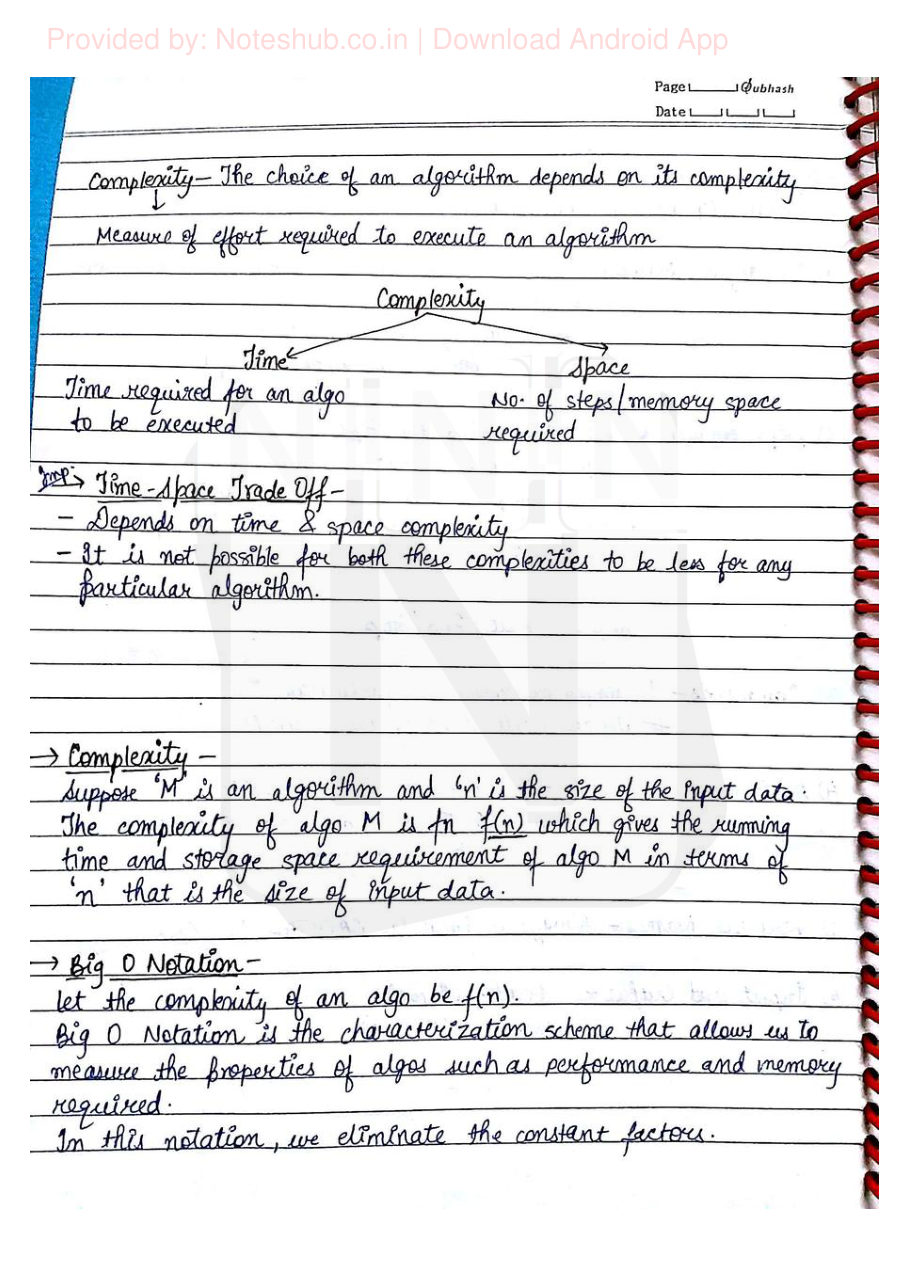 Provided by: Noteshub.co.in | Download Android App
Page Subhash
Date
Complexity – The choice of an algorithm depends on its complexity
Measure of effort required to execute an algorithm
Complexity
Time Space
Time required for an algo
to be executed
No. of steps/memory space
required
Imp→ Time-Space Trade Off –
– Depends on time & space complexity
– It is not possible for both these complexities to be less for any
particular algorithm.
→ Complexity –
Suppose 'M' is an algorithm and 'n' is the size of the input data.
The complexity of algo M is fn f(n) which gives the running
time and storage space requirement of algo M in terms of
'n' that is the size of input data.
→ Big O Notation –
Let the complexity of an algo be f(n).
Big O Notation is the characterization scheme that allows us to
measure the properties of algos such as performance and memory
required.
In this notation, we eliminate the constant factors.